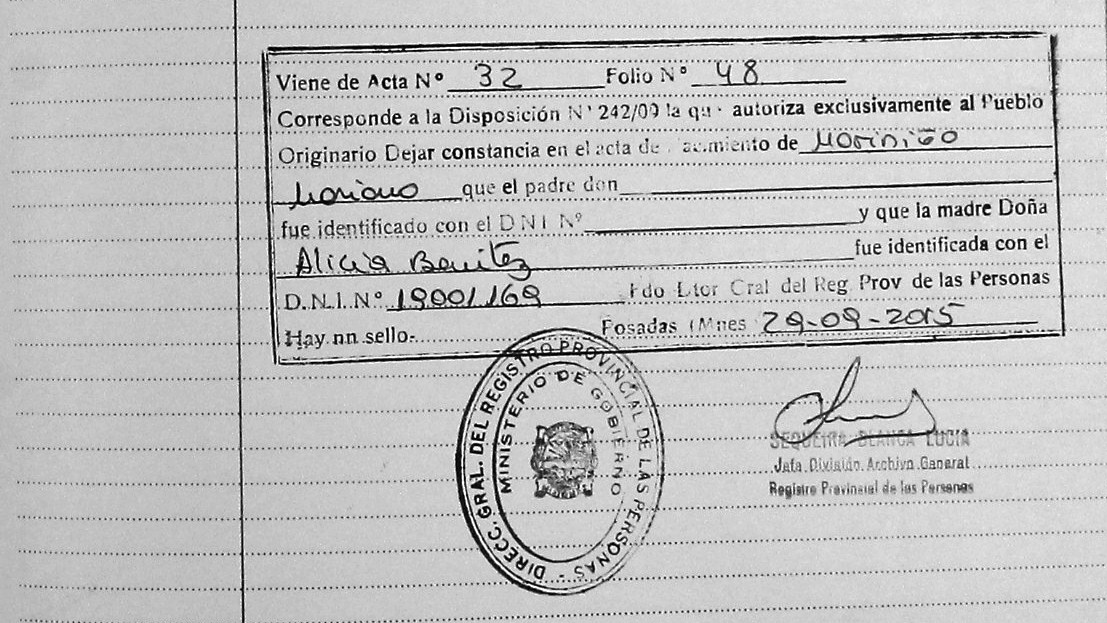 Viene de Acta Nº 32 Folio Nº 48
Corresponde a la Disposición Nº 242/09 la que autoriza exclusivamente al Pueblo
Originario Dejar constancia en el acta de nacimiento de
Mariano que el padre don
fue identificado con el D N I Nº y que la madre Doña
Alicia Benitez fue identificada con el
D.N.I.Nº 19001169 Fdo Dtor Gral del Reg Prov de las Personas
Hay nn sello- Posadas (Mnes 29-09-2015
DIRECC. GRAL. DEL REGISTRO PROVINCIAL DE LAS PERSONAS -
MINISTERIO DE GOBIERNO
SEQUEIRA BLANCA LUCIA
Jefa División Archivo General
Registro Provincial de las Personas